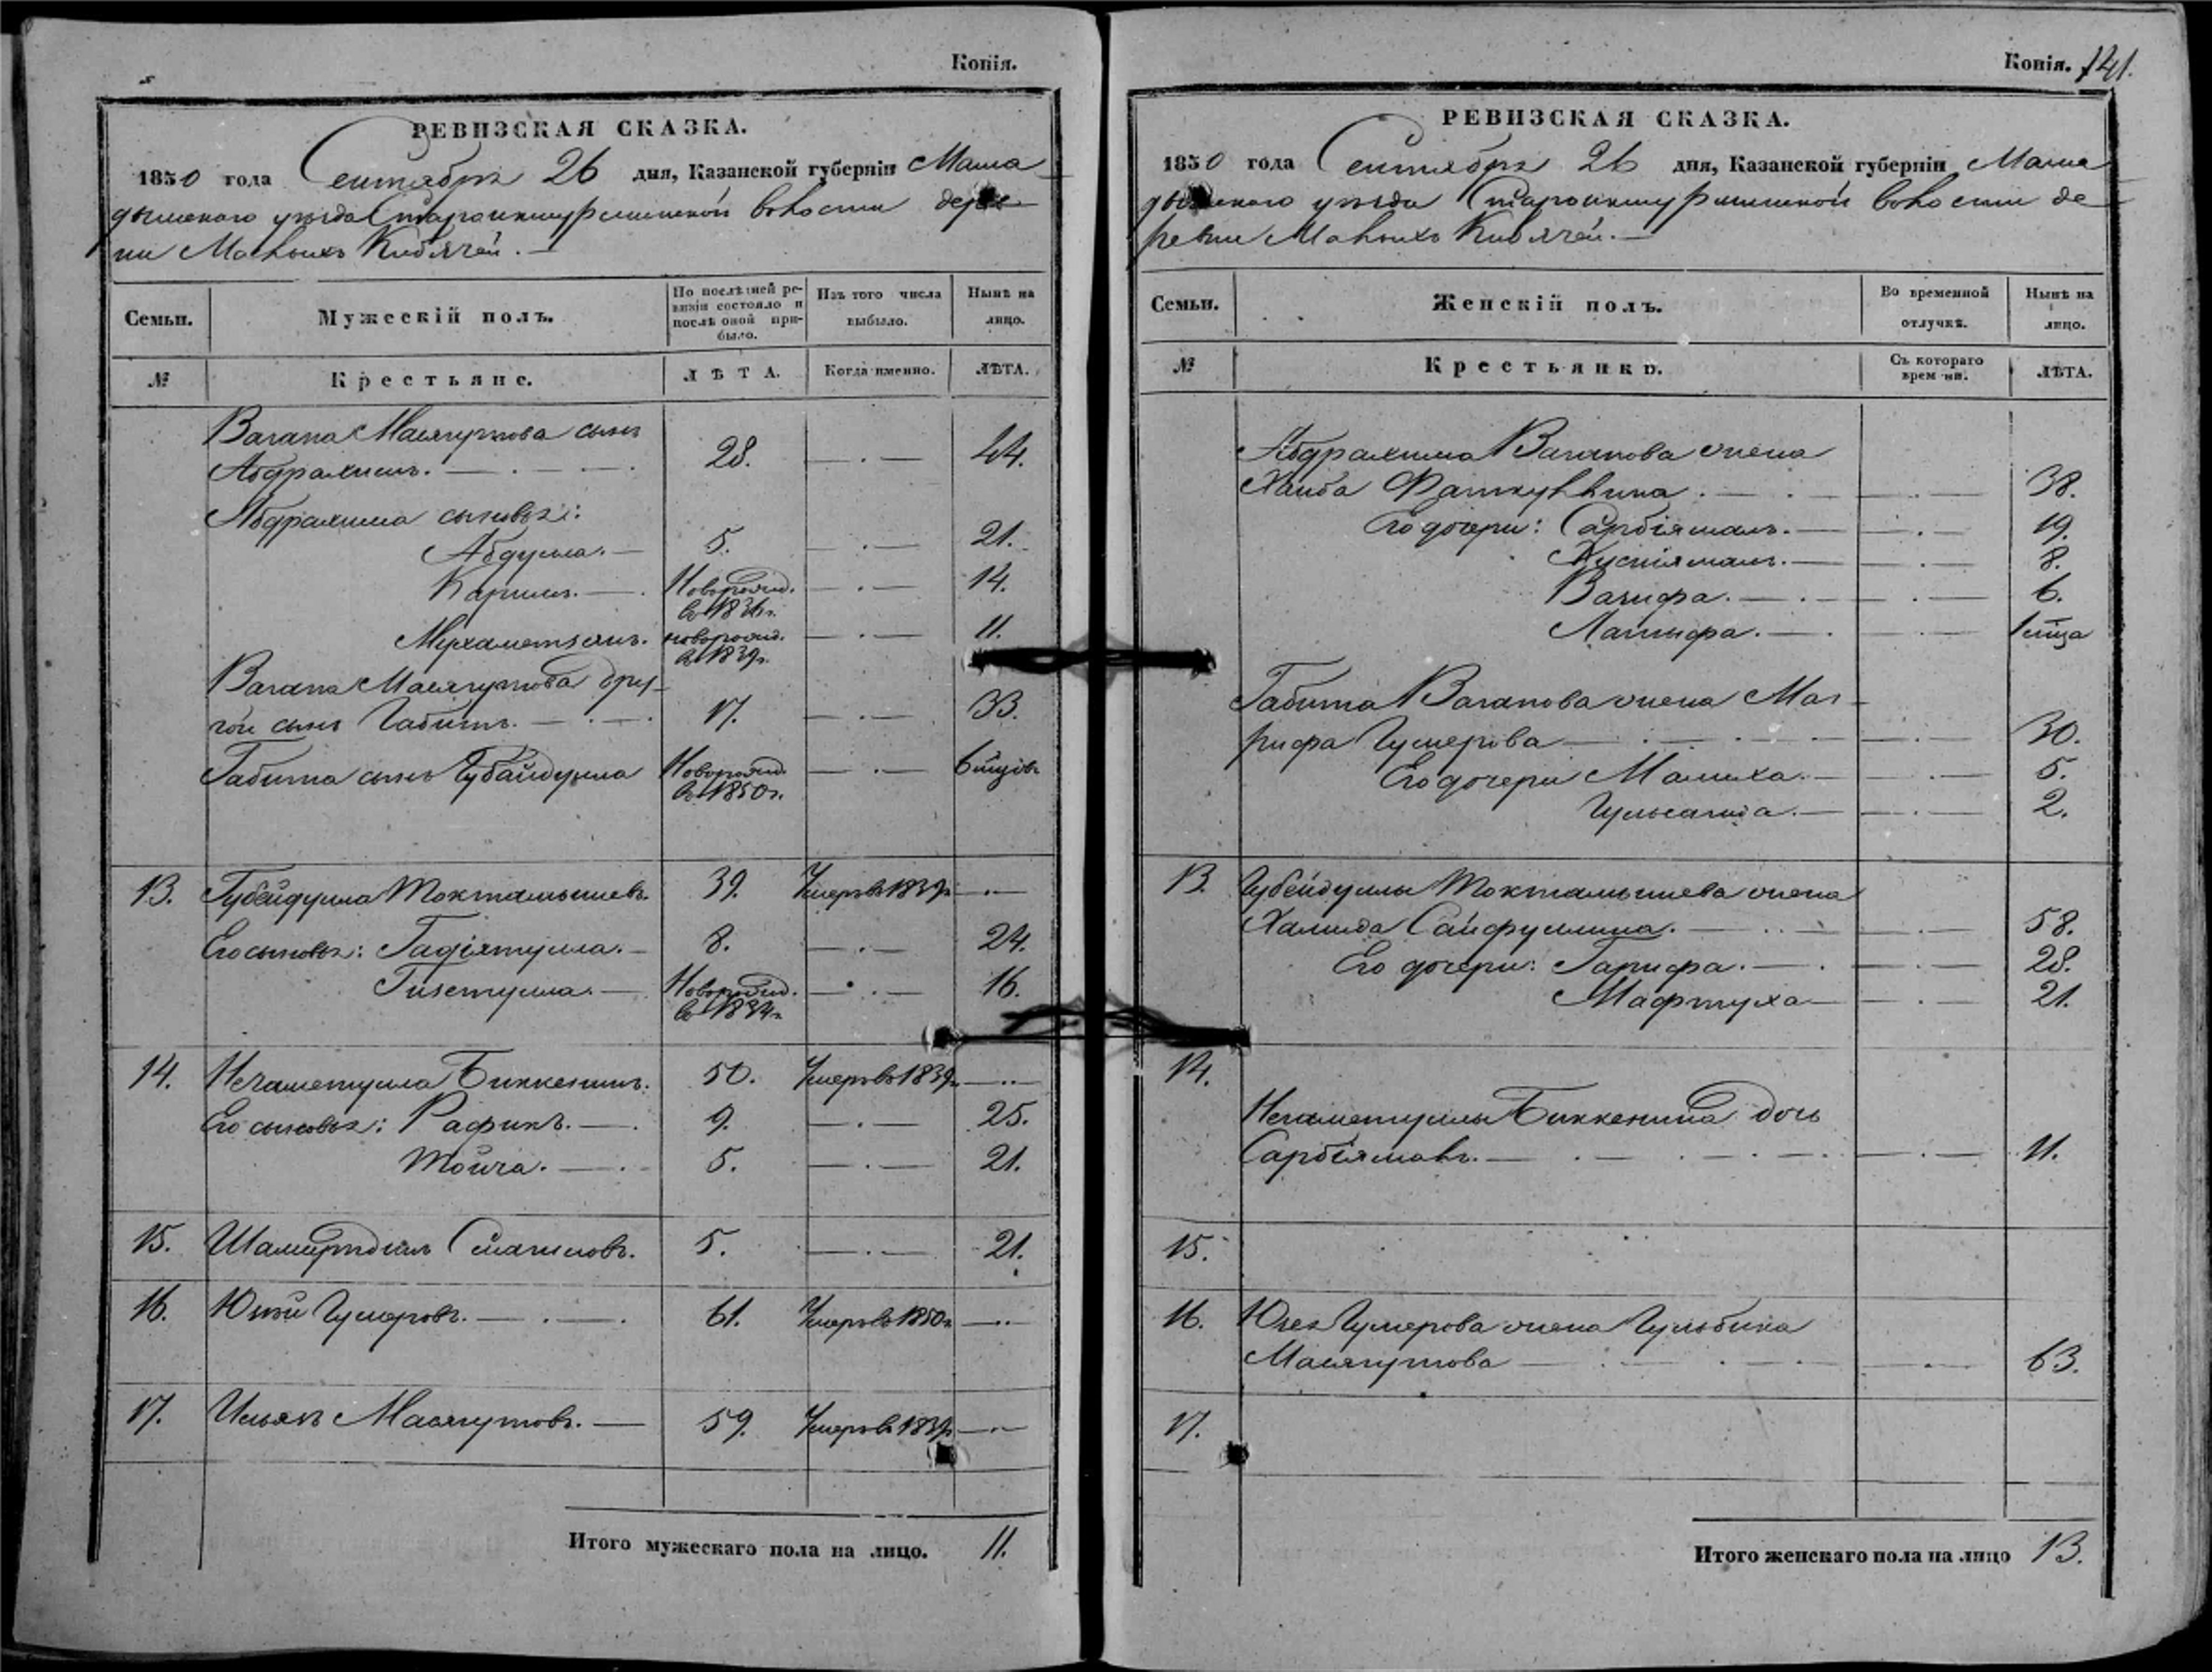 Копія.
РЕВИЗСКАЯ СКАЗКА.
1850 года Сентября 26 дня, Казанской губерніи Мама
дышскаго уѣзда Волости дерев
ни Малыхъ Кибячей. —
Семьи.
Мужескій полъ.
По послѣдней ре-
визіи состояло и
послѣ оной при-
было.
Изъ того числа
выбыло.
Нынѣ на
лицо.
№
Крестьяне.
ЛѢТА.
Когда именно.
ЛѢТА.
Вагапа Масягутова сынъ
Абдрахимъ. 28. 44.
Абдрахима сыновья:
Абдулла. 5. 21.
Каримъ. Новорожд. 14.
въ 1836г.
Мухаметзянъ. новорожд. 11.
въ 1839г.
Вагапа Масягутова дру-
гой сынъ Габитъ. 17. 33.
Габита сынъ Губайдулла Новорожд. 6 мцовъ
въ 1850г.
13. Губейдулла Токтамышевъ. 39. Умеръ въ 1839г.
Его сыновья: Гадіятулла. 8. 24.
Гизетулла. Новорожд. 16.
въ 1834г.
14. Негаметулла Биккенинъ. 50. Умеръ въ 1839г.
Его сыновья: Рафикъ. 9. 25.
Мойга. 5. 21.
15. 5. 21.
16. Юней Гумеровъ. 61. Умеръ въ 1850г.
17. Ильясъ Масягутовъ. 59. Умеръ въ 1839г.
Итого мужескаго пола на лицо. 11.
Копія. 141.
РЕВИЗСКАЯ СКАЗКА.
1850 года Сентября 26 дня, Казанской губерніи Мама
дышскаго уѣзда волости де
ревни Малыхъ Кибячей. —
Семьи.
Женскій полъ.
Во временной
отлучкѣ.
Нынѣ на
лицо.
№
Крестьянки.
Съ котораго
времени.
ЛѢТА.
Абдрахима Вагапова жена
Хаиба Фаткуллина. 38.
Его дочери: Сарбіямалъ. 19.
Хусніямалъ. 8.
Вагифа. 6.
Латыфа. 1 мца
Габита Вагапова жена Маг-
рифа Гумерова 30.
Его дочери Малиха. 5.
Гульсагида. 2.
13. Губейдуллы Токтамышева жена
Хамида Сайфуллина. 58.
Его дочери: Гарифа. 28.
Мафтуха 21.
14.
Негаметуллы Биккенина дочь
Сарбіямалъ. 11.
15.
16. Юнея Гумерова жена Гульбика
Масягутова 63.
17.
Итого женскаго пола на лицо 13.